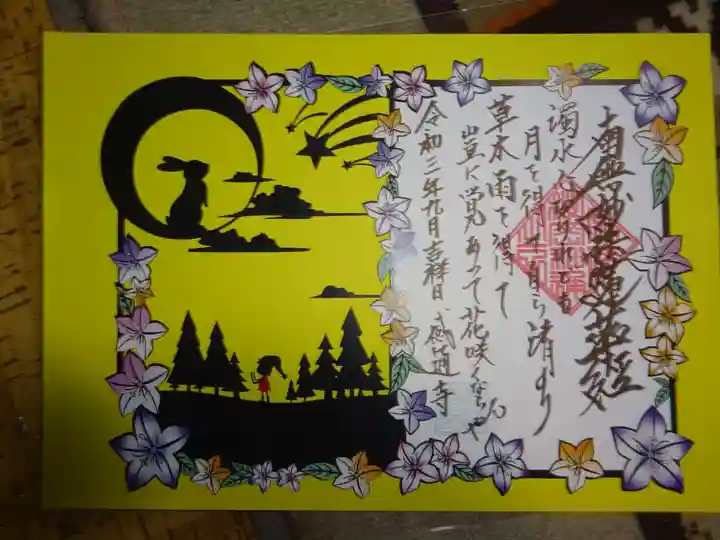 南無妙法蓮華経
濁水心無けれども
月を得て自ら清めり
草木雨を得て
豈に覚あって花咲くならんや
令和二年九月吉祥日 感通寺